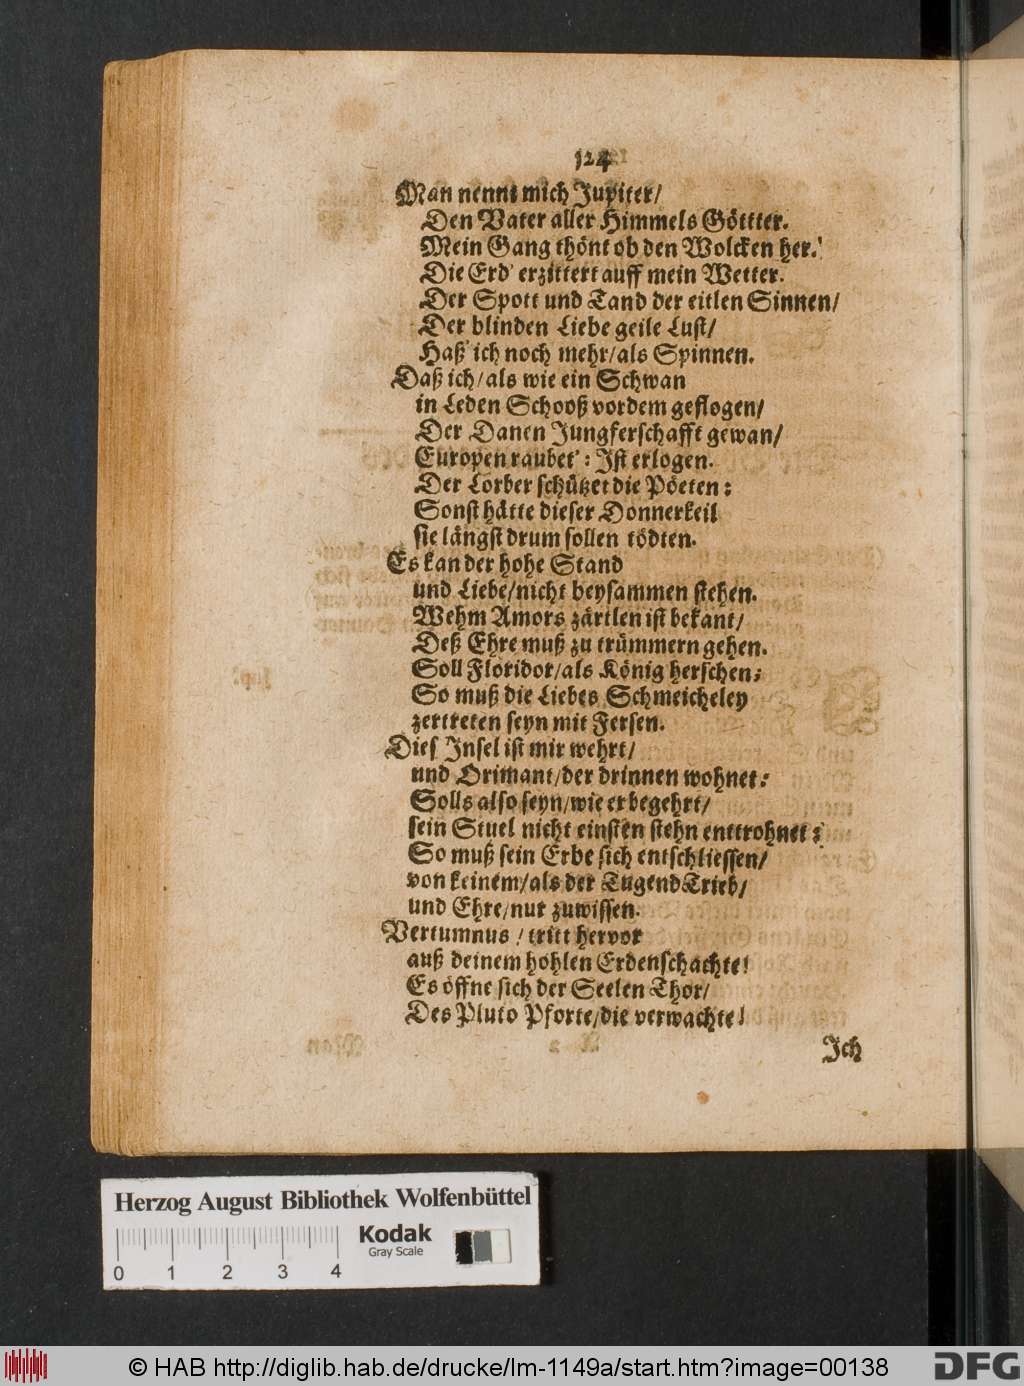 124
Man nennt mich Jupiter/
Den Vater aller Himmels Göttter.
Mein Gang thönt ob den Wolcken her.
Die Erd' erzittert auff mein Wetter.
Der Spott und Tand der eitlen Sinnen/
Der blinden Liebe geile Lust/
Haß' ich noch mehr/als Spinnen.
Daß ich/als wie ein Schwan
in Leden Schooß vordem geflogen/
Der Danen Jungferschafft gewan/
Europen raubet': Ist erlogen.
Der Lorber schützet die Pöeten:
Sonst hätte dieser Donnerkeil
sie längst drum sollen tödten.
Es kan der hohe Stand
und Liebe/nicht beysammen stehen.
Wehm Amors zärtlen ist bekant/
Deß Ehre muß zu trümmern gehen.
Soll Floridor/als König herschen:
So muß die Liebes Schmeicheley
zertreten seyn mit Fersen.
Dies' Insel ist mir wehrt/
und Orimant/der drinnen wohnet:
Solls also seyn/wie er begehrt/
sein Stuel nicht einsten stehn enttrohnet:
So muß sein Erbe sich entschliessen/
von keinem/als der Tugend Trieb/
und Ehre/nur zuwissen.
Vertumnus/tritt hervor
auß deinem hohlen Erdenschachte!
Es öffne sich der Seelen Thor/
Des Pluto Pforte/die verwachte!
Ich
Herzog August Bibliothek Wolfenbüttel
Kodak
Gray Scale
0 1 2 3 4
© HAB http://diglib.hab.de/drucke/lm-1149a/start.htm?image=00138
DFG